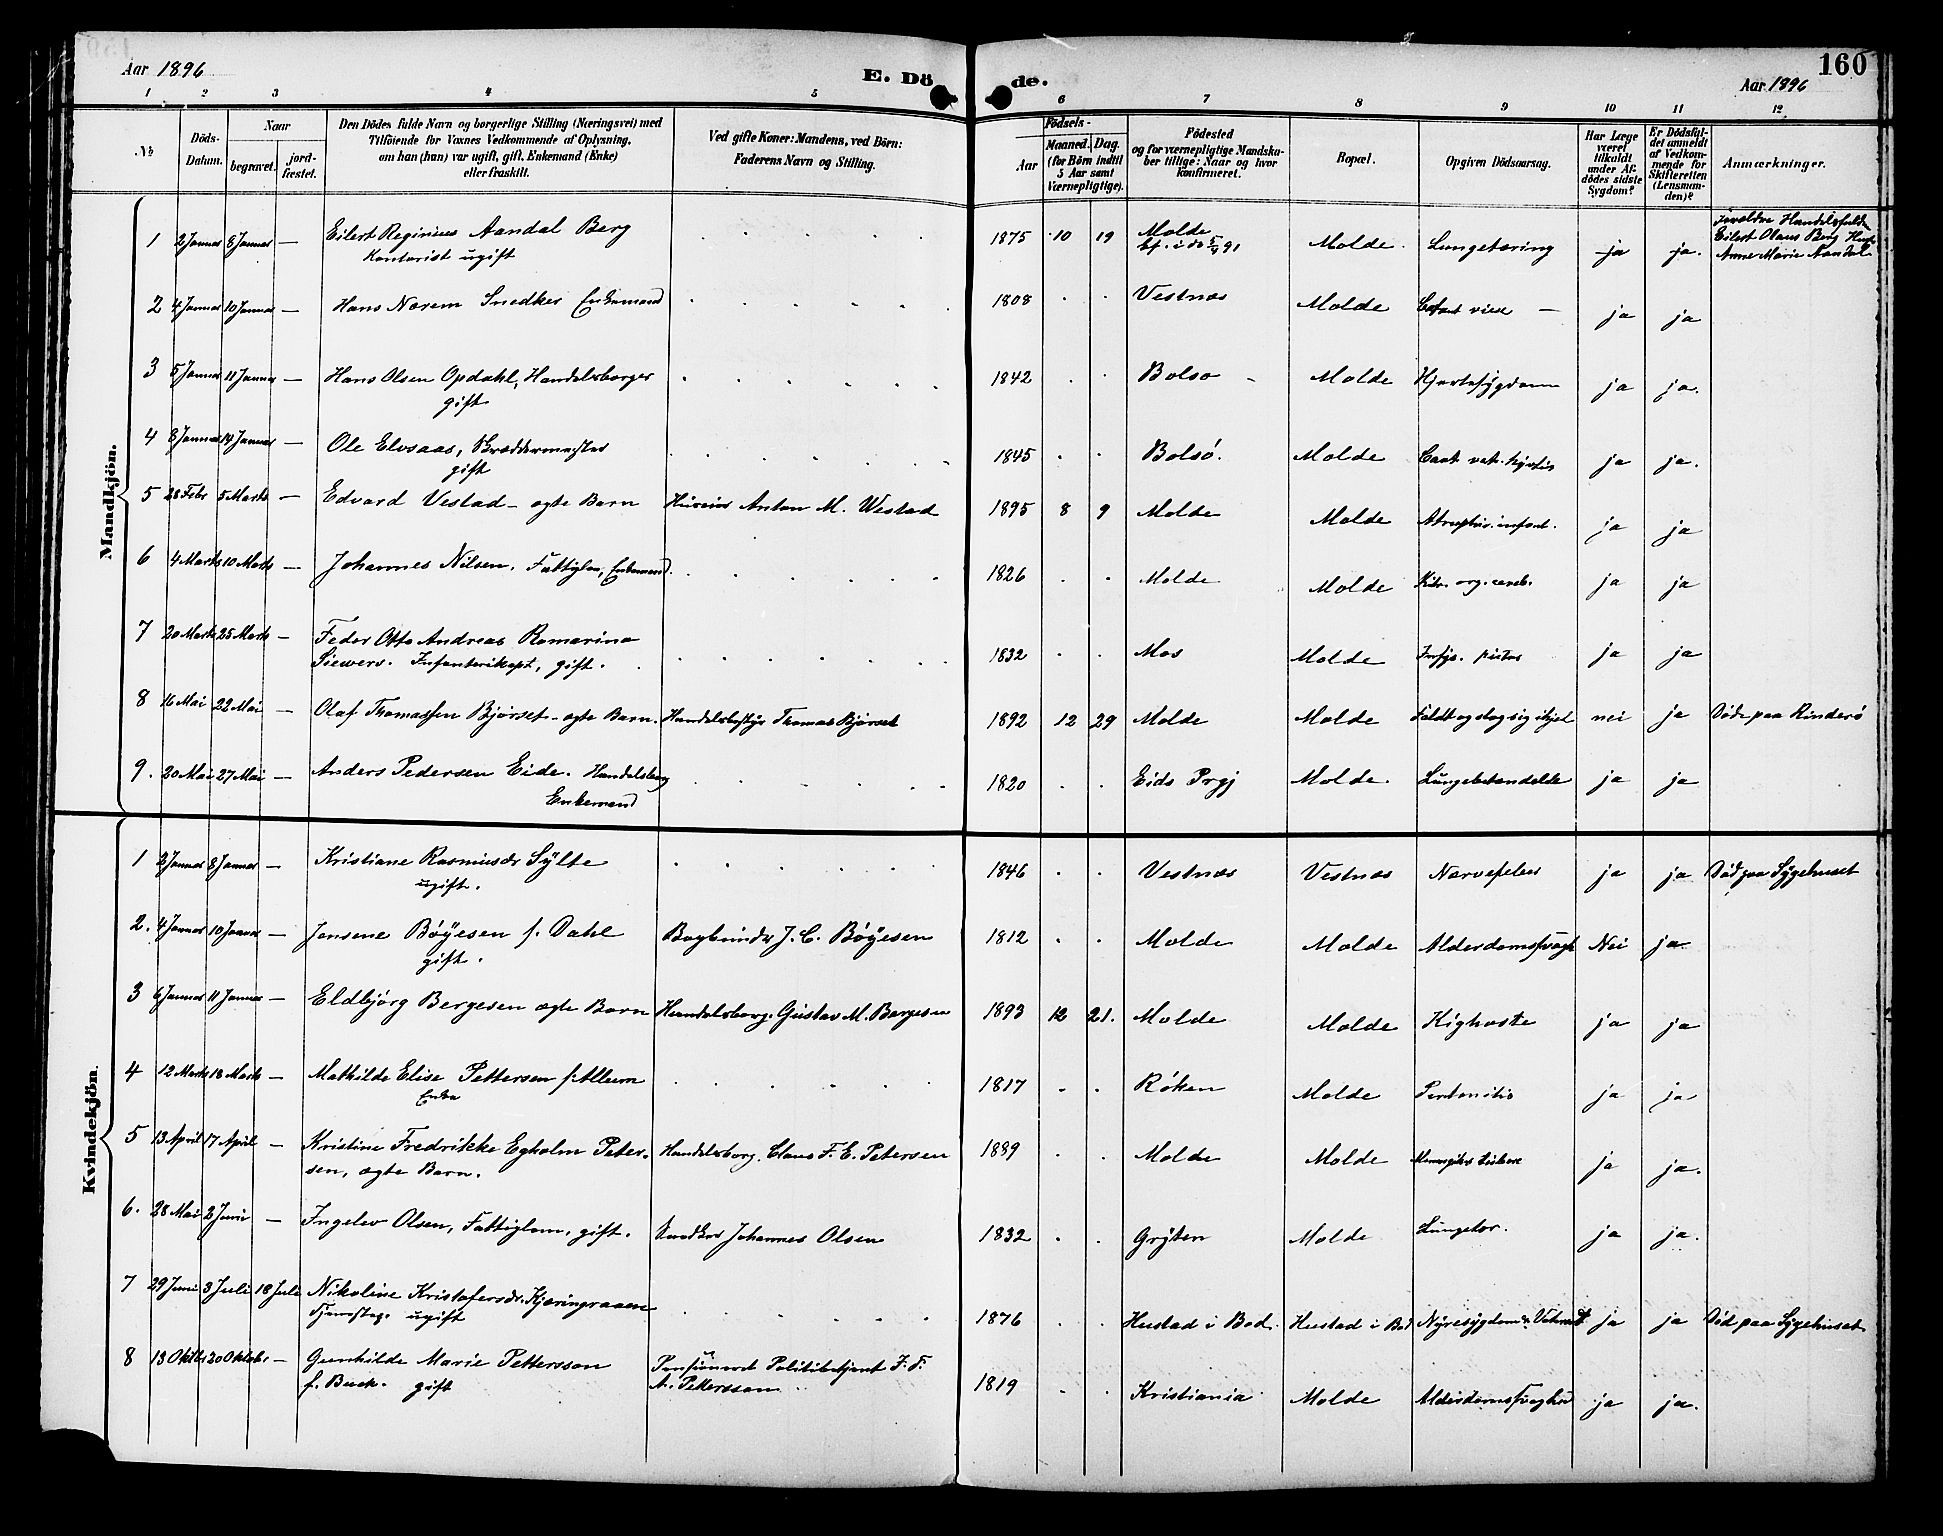 Aar 1896
E. Döde.
Aar 1896
160
1 2 3 4 5 6 7 8 9 10 11 12
No
Döds-Datum.
Naar
begravet.
jord-fæstet.
Den Dödes fulde Navn og borgerlige Stilling (Næringsvei) med
Tilföiende for Voxnes Vedkommende af Oplysning,
om han (hun) var ugift, gift, Enkemand (Enke)
eller fraskilt.
Ved gifte Koner: Mandens, ved Börn:
Faderens Navn og Stilling.
Födsels-
Aar
Maaned. Dag.
(for Börn indtil
5 Aar samt
Værnepligtige).
Födested
og for værnepligtige Mandska-
ber tillige: Naar og hvor
konfirmeret.
Bopæl.
Opgiven Dödsaarsag.
Har Læge
været
tilkaldt
under Af-
dödes sidste
Sygdom?
Er Dödsfal-
det anmeldt
af Vedkom-
mende for
Skifteretten
(Lensman-
den)?
Anmærkninger.
Mandkjön.
1 2 Januar 8 Januar — Eilert Reginius Aandal Berg 1875 10 19 Molde Molde. Lungetæring ja ja. Forældre Handelsfuldm
Kontorist ugift Eilert Olaus Berg Hust
Anne Marie Aandal
2 4 Januar 10 Januar — Hans Narem Snedker Enkemand 1808 Vestnæs Molde ja ja
3 5 Januar 11 Januar — Hans Olsen Opdahl, Handelsborger 1842 Bolsø Molde Hjertesygdom ja ja.
gift
4 8 Januar 14 Januar — Ole Elvsaas, Skræddermester 1845 Bolsø. Molde ja ja.
gift
5 28 Febr 5 Marts — Edvard Vestad — ægte Barn Huseier Anton M. Westad 1895 8 9 Molde Molde Atrophia infant. ja ja
6 4 Marts 10 Marts — Johannes Nilsen. Fattiglem, Enkemand. 1826 Molde Molde org. cereb. ja ja
7 20 Marts 25 Marts — Feder Otto Andreas Romarino
Siewers. Infanterikapt, gift. 1832 Mos Molde ja ja
8 16 Mai 22 Mai — Olaf Thomassen Bjørset — ægte Barn. Handelsbestyr Thomas Bjørset 1892 12 29 Molde Molde Faldt og slog sig ihjel nei ja Døde paa Rinderø
9. 20 Mai 27 Mai — Anders Pedersen Eide. Handelsborg 1820 Eids Prgj Molde. Lungebetændelse ja ja
Enkemand
Kvindekjön.
1 2 Januar 8 Januar — Kristiane Rasmusdr Sylte 1846 Vestnæs Vestnæs Nervefeber ja ja Død paa Sygehuset
ugift.
2. 4 Januar 10 Januar — Jensene Bøyesen f. Dahl Bogbinder J. C. Bøyesen 1812 Molde Molde Alderdomssvagh Nei ja
gift.
3 6 Januar 11 Januar — Eldbjørg Bergesen ægte Barn Handelsborg. Gustav M. Bergesen 1893 12 21. Molde Molde Kighoste ja ja
4 12 Marts 18 Marts — Mathilde Elise Pettersen f. Alleem 1817 Røken Molde Peritonitis ja ja
Enke
5 13 April 17 April — Kristine Fredrikke Egholm Peter- Handelsborg. Claus F. E. Petersen 1889 Molde Molde ja ja.
sen, ægte Barn.
6. 28 Mai 2 Juni — Ingelev Olsen, Fattiglem, gift. Snedker Johannes Olsen 1832 Grytten Molde Lungetær. ja ja.
7 29 Juni 3 Juli 18 Juli Nikoline Kristofersdr. Kjæringraaen 1876 Hustad i Bod. Hustad i Bod Nyresygdom ja ja Død paa Sygehuset
Tjenestpg. ugift
8 13 Oktbr 20 Oktobr — Gunhilde Marie Pettersson Pensioneret Politibetjent J. F. 1819 Kristiania Molde Alderdomssvaghed ja ja.
f. Buck. gift A. Pettersson